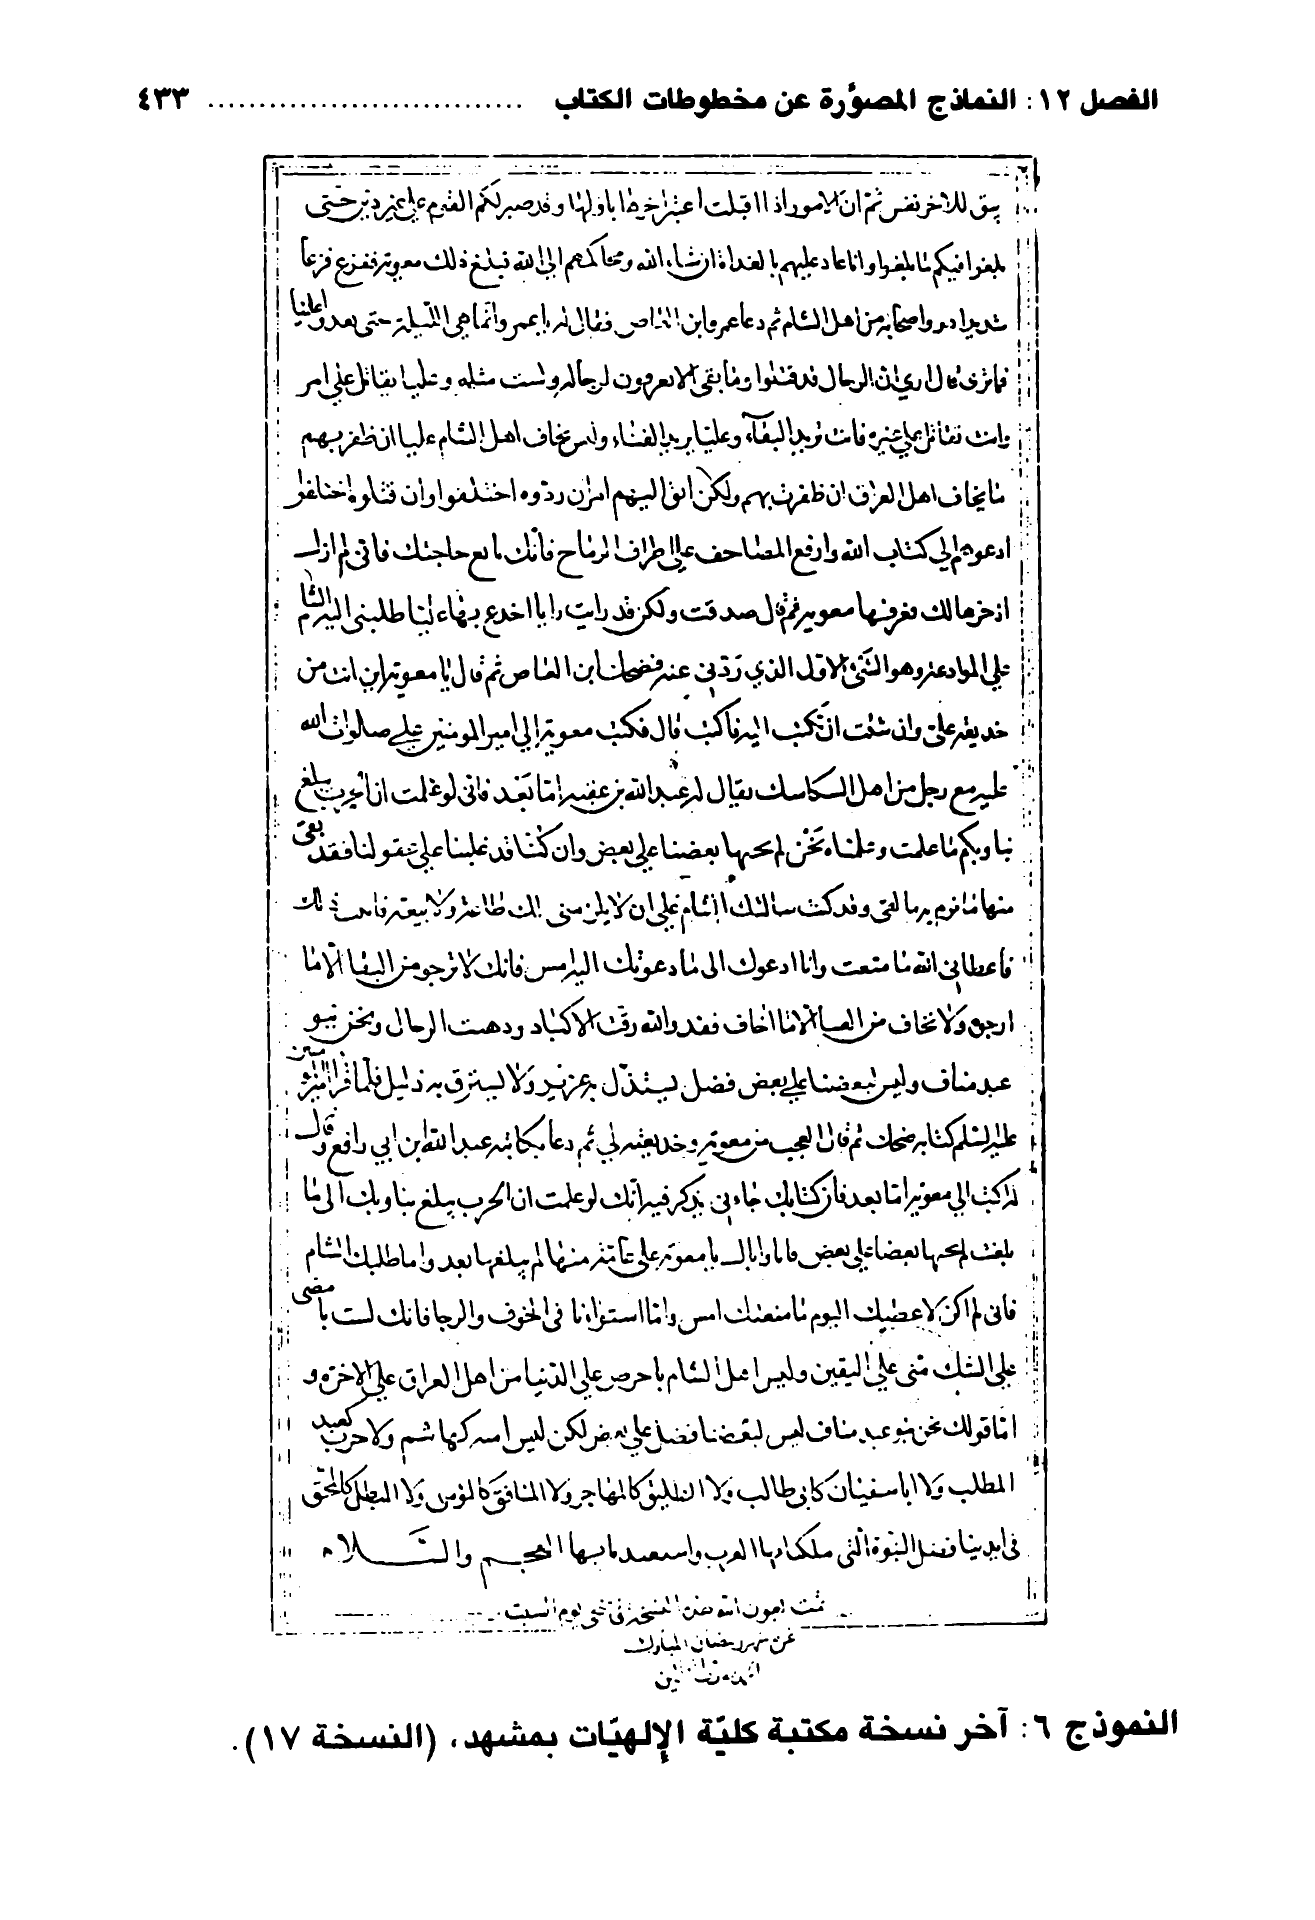 الفصل ١٢: النماذج المصوَّرة عن مخطوطات الكتاب .............................. ٤٣٣
يبق للاخر نفس ثم ان الامور اذا اقبلت اعتبر اخرها باولها وقد صبر لكم القوم على غير دين حتى
بلغوا فيكم ما بلغوا وانا غاد عليهم بالغداة ان شاء الله ومحاكمهم الى الله فبلغ ذلك معوية ففزع فزعا
شديدا هو واصحابه من اهل الشام ثم دعا عمرو ابن العاص فقال له يا عمرو انما هي الليلة حتى يغدو علينا
فما ترى قال ارى ان الرجال قد قتلوا وما بقى لا يقومون لرجاله ولست مثله وعليا يقاتل على امر
وانت تقاتل على غيره فانت تريد البقاء وعليا يريد الفناء وليس يخاف اهل الشام عليا ان ظفر بهم
ما يخاف اهل العراق ان ظفرت بهم ولكن الق اليهم امرا ان ردوه اختلفوا وان قبلوه اختلفوا
ادعوهم الي كتاب الله وارفع المصاحف على اطراف الرماح فانك بالغ حاجتك فاني لم ازل
اذخرها لك فعرفها معوية ثم قال صدقت ولكن قد رايت رايا اخدع به عليا طلبني اليه الشام
على الموادعة وهو الشئ الاول الذي ردني عنه فضحك ابن العاص ثم قال يا معوية اين انت من
خديعة علي وان شئت ان تكتب اليه فاكتب قال فكتب معوية الي امير المومنين علي صلوات الله
عليه مع رجل من اهل السكاسك يقال له عبد الله بن عقبه اما بعد فاني لو علمت ان الحرب يبلغ
بنا وبكم ما علمت وعلمناه نحن لم يجنها بعضنا علي بعض وان كنا قد غلبنا علي عقولنا فقد بقى
منها ما نرم به ما بقى وقد كنت سالتك الشام على ان لا يلزمنى لك طاعة ولا بيعة فابيت ذلك
فاعطاني الله ما منعت وانا ادعوك الى ما دعوتك اليه امس فانك لا ترجو من البقا الا ما
ارجو ولا تخاف من الفنا الا ما اخاف فقد والله رقت الاكباد وذهبت الرجال ونحن بنو
عبد مناف وليس لبعضنا علي بعض فضل يستذل به عزيز ولا يسترق به ذليل فلما قرا امير المؤمنين
عليه السلم كتابه ضحك ثم قال العجب من معوية وخديعته لي ثم دعا بكاتبه عبد الله ابن ابي رافع وقال
له اكتب الي معوية اما بعد فان كتابك جاءني يذكر فيه انك لو علمت ان الحرب يبلغ بنا وبك الى ما
بلغت لم يجنها بعضنا علي بعض فانا واياك يا معوية على غاية منها لم يبلغها بعد واما طلبك الشام
فاني لم اكن لاعطيك اليوم ما منعتك امس واما استواؤنا في الخوف والرجا فانك لست بامضى
على الشك منى علي اليقين وليس اهل الشام باحرص علي الدنيا من اهل العراق علي الاخرة و
اما قولك نحن بنو عبد مناف ليس لبعضنا فضل علي بعض لكن ليس اميه كهاشم ولا حرب كعبد
المطلب ولا ابا سفيان كابي طالب ولا الطليق كالمهاجر ولا المنافق كالمؤمن ولا المبطل كالمحق
في ايدينا فضل النبوة التي ملكنا بها العرب واستعبدنا بها العجم والسلام
تمت بعون الله هذه النسخة في يوم السبت
من شهر رمضان المبارك
النموذج ٦: آخر نسخة مكتبة كليّة الإلهيّات بمشهد، (النسخة ١٧).